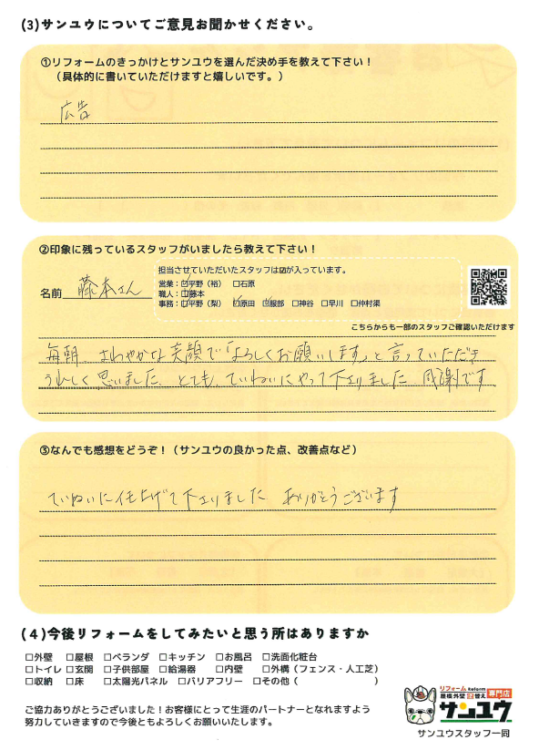 (3)サンユウについてご意見お聞かせください。
①リフォームのきっかけとサンユウを選んだ決め手を教えて下さい！
（具体的に書いていただけますと嬉しいです。）
広告
②印象に残っているスタッフがいましたら教えて下さい！
担当させていただいたスタッフは☑が入っています。
営業：☑平野（裕） □石原
職人：☑藤本
事務：☑平野（梨） ☑原田 ☑服部 □神谷 □早川 □仲村渠
名前 藤本さん
こちらからも一部のスタッフご確認いただけます
毎朝、さわやかな笑顔で「よろしくお願いします」と言っていただき
うれしく思いました とても、ていねいにやって下さりました 感謝です
③なんでも感想をどうぞ！（サンユウの良かった点、改善点など）
ていねいに仕上げて下さりました ありがとうございます
(４)今後リフォームをしてみたいと思う所はありますか
□外壁 □屋根 □ベランダ □キッチン □お風呂 □洗面化粧台
□トイレ □玄関 □子供部屋 □給湯器 □内壁 □外構（フェンス・人工芝）
□収納 □床 □太陽光パネル □バリアフリー □その他（ ）
ご協力ありがとうございました！お客様にとって生涯のパートナーとなれますよう
努力していきますので今後ともよろしくお願いいたします。
リフォーム Reform
屋根外壁塗替え専門店
サンユウ
サンユウスタッフ一同